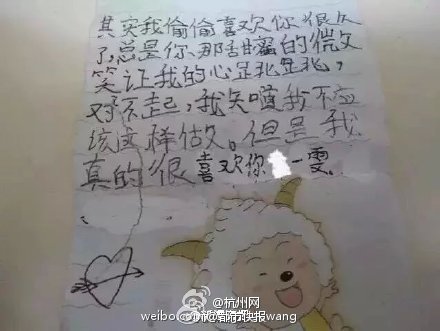 其实我偷偷喜欢你很久
了,总是你那甜蜜的微
笑让我的心
对不起,我知道我不应
该这样做。但是我
真的很喜欢你 一雯
@杭州网
@都市快报